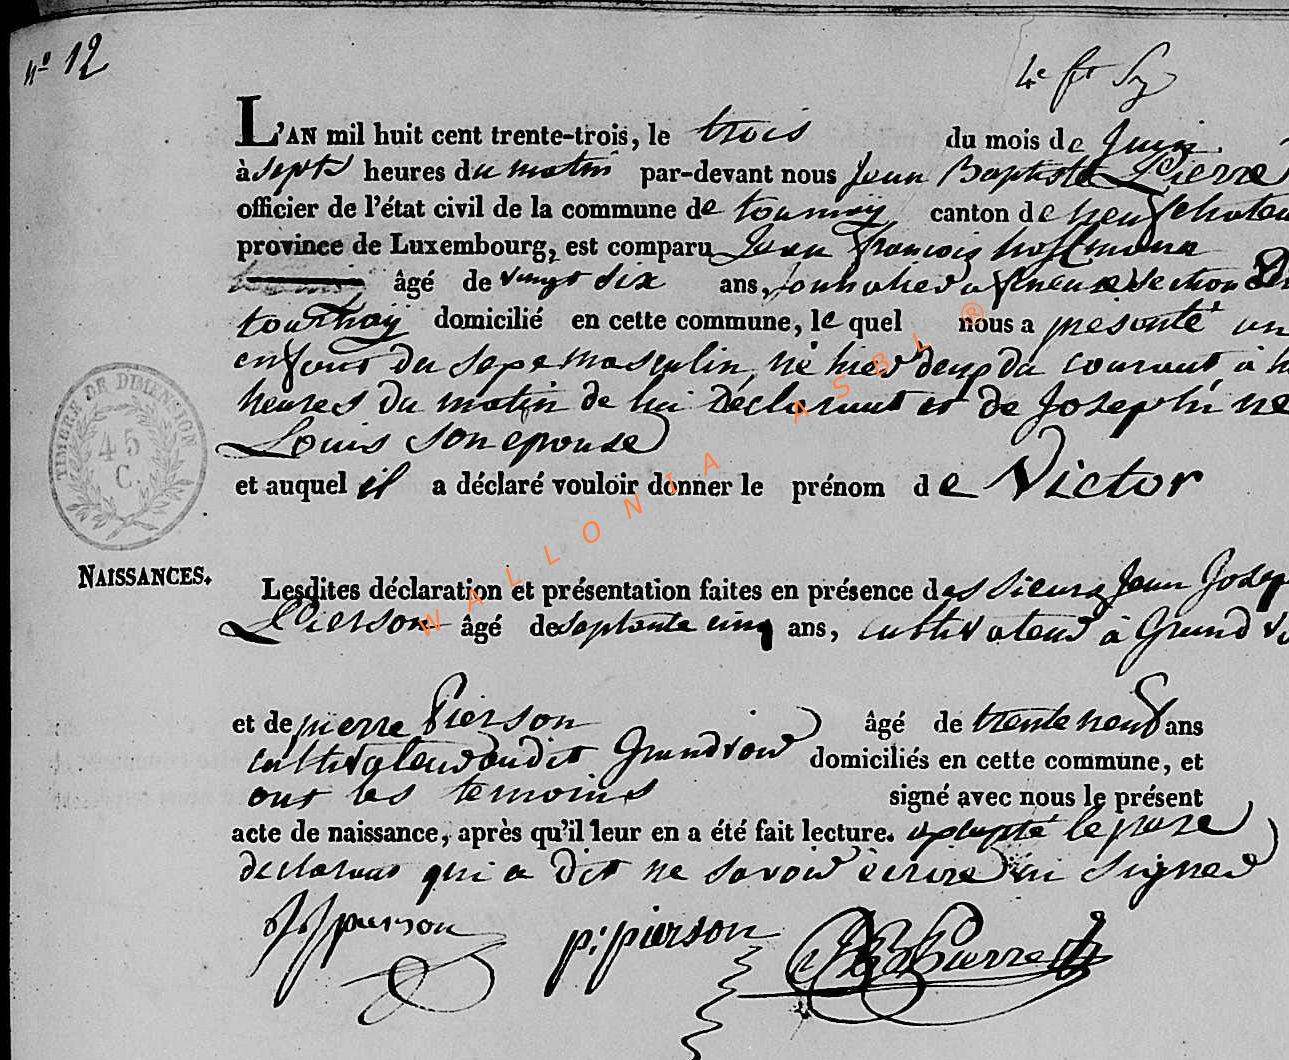 nº 12
4e ft
L'AN mil huit cent trente-trois, le trois du mois de Juin
à septs heures du matin par-devant nous Jean Baptiste Pierre
officier de l'état civil de la commune de tournay canton de neufchateau
province de Luxembourg, est comparu Jean françois hoffmann
âgé de vingt six ans, journalier a fineuse section de
tournay domicilié en cette commune, le quel nous a présenté un
enfant du sexe masculin, né hier deux du courant à h
heures du matin de lui Déclarant et de Josephi ne
Louis son epouse
et auquel il a déclaré vouloir donner le prénom de Victor
TIMBRE DE DIMENSION
45
C.
NAISSANCES.
Lesdites déclaration et présentation faites en présence des sieurs Jean Josep
Pierson âgé de septante cinq ans, cultivateur à Grand vo
et de pierre Pierson âgé de trente neuf ans
cultivateur audit Grandvoir domiciliés en cette commune, et
ont les temoins signé avec nous le présent
acte de naissance, après qu'il leur en a été fait lecture. le pere
declarant qui a dit ne savoir écrire ni signer
JJ pierson p: pierson JB Pierre
WALLONIA ASBL ®